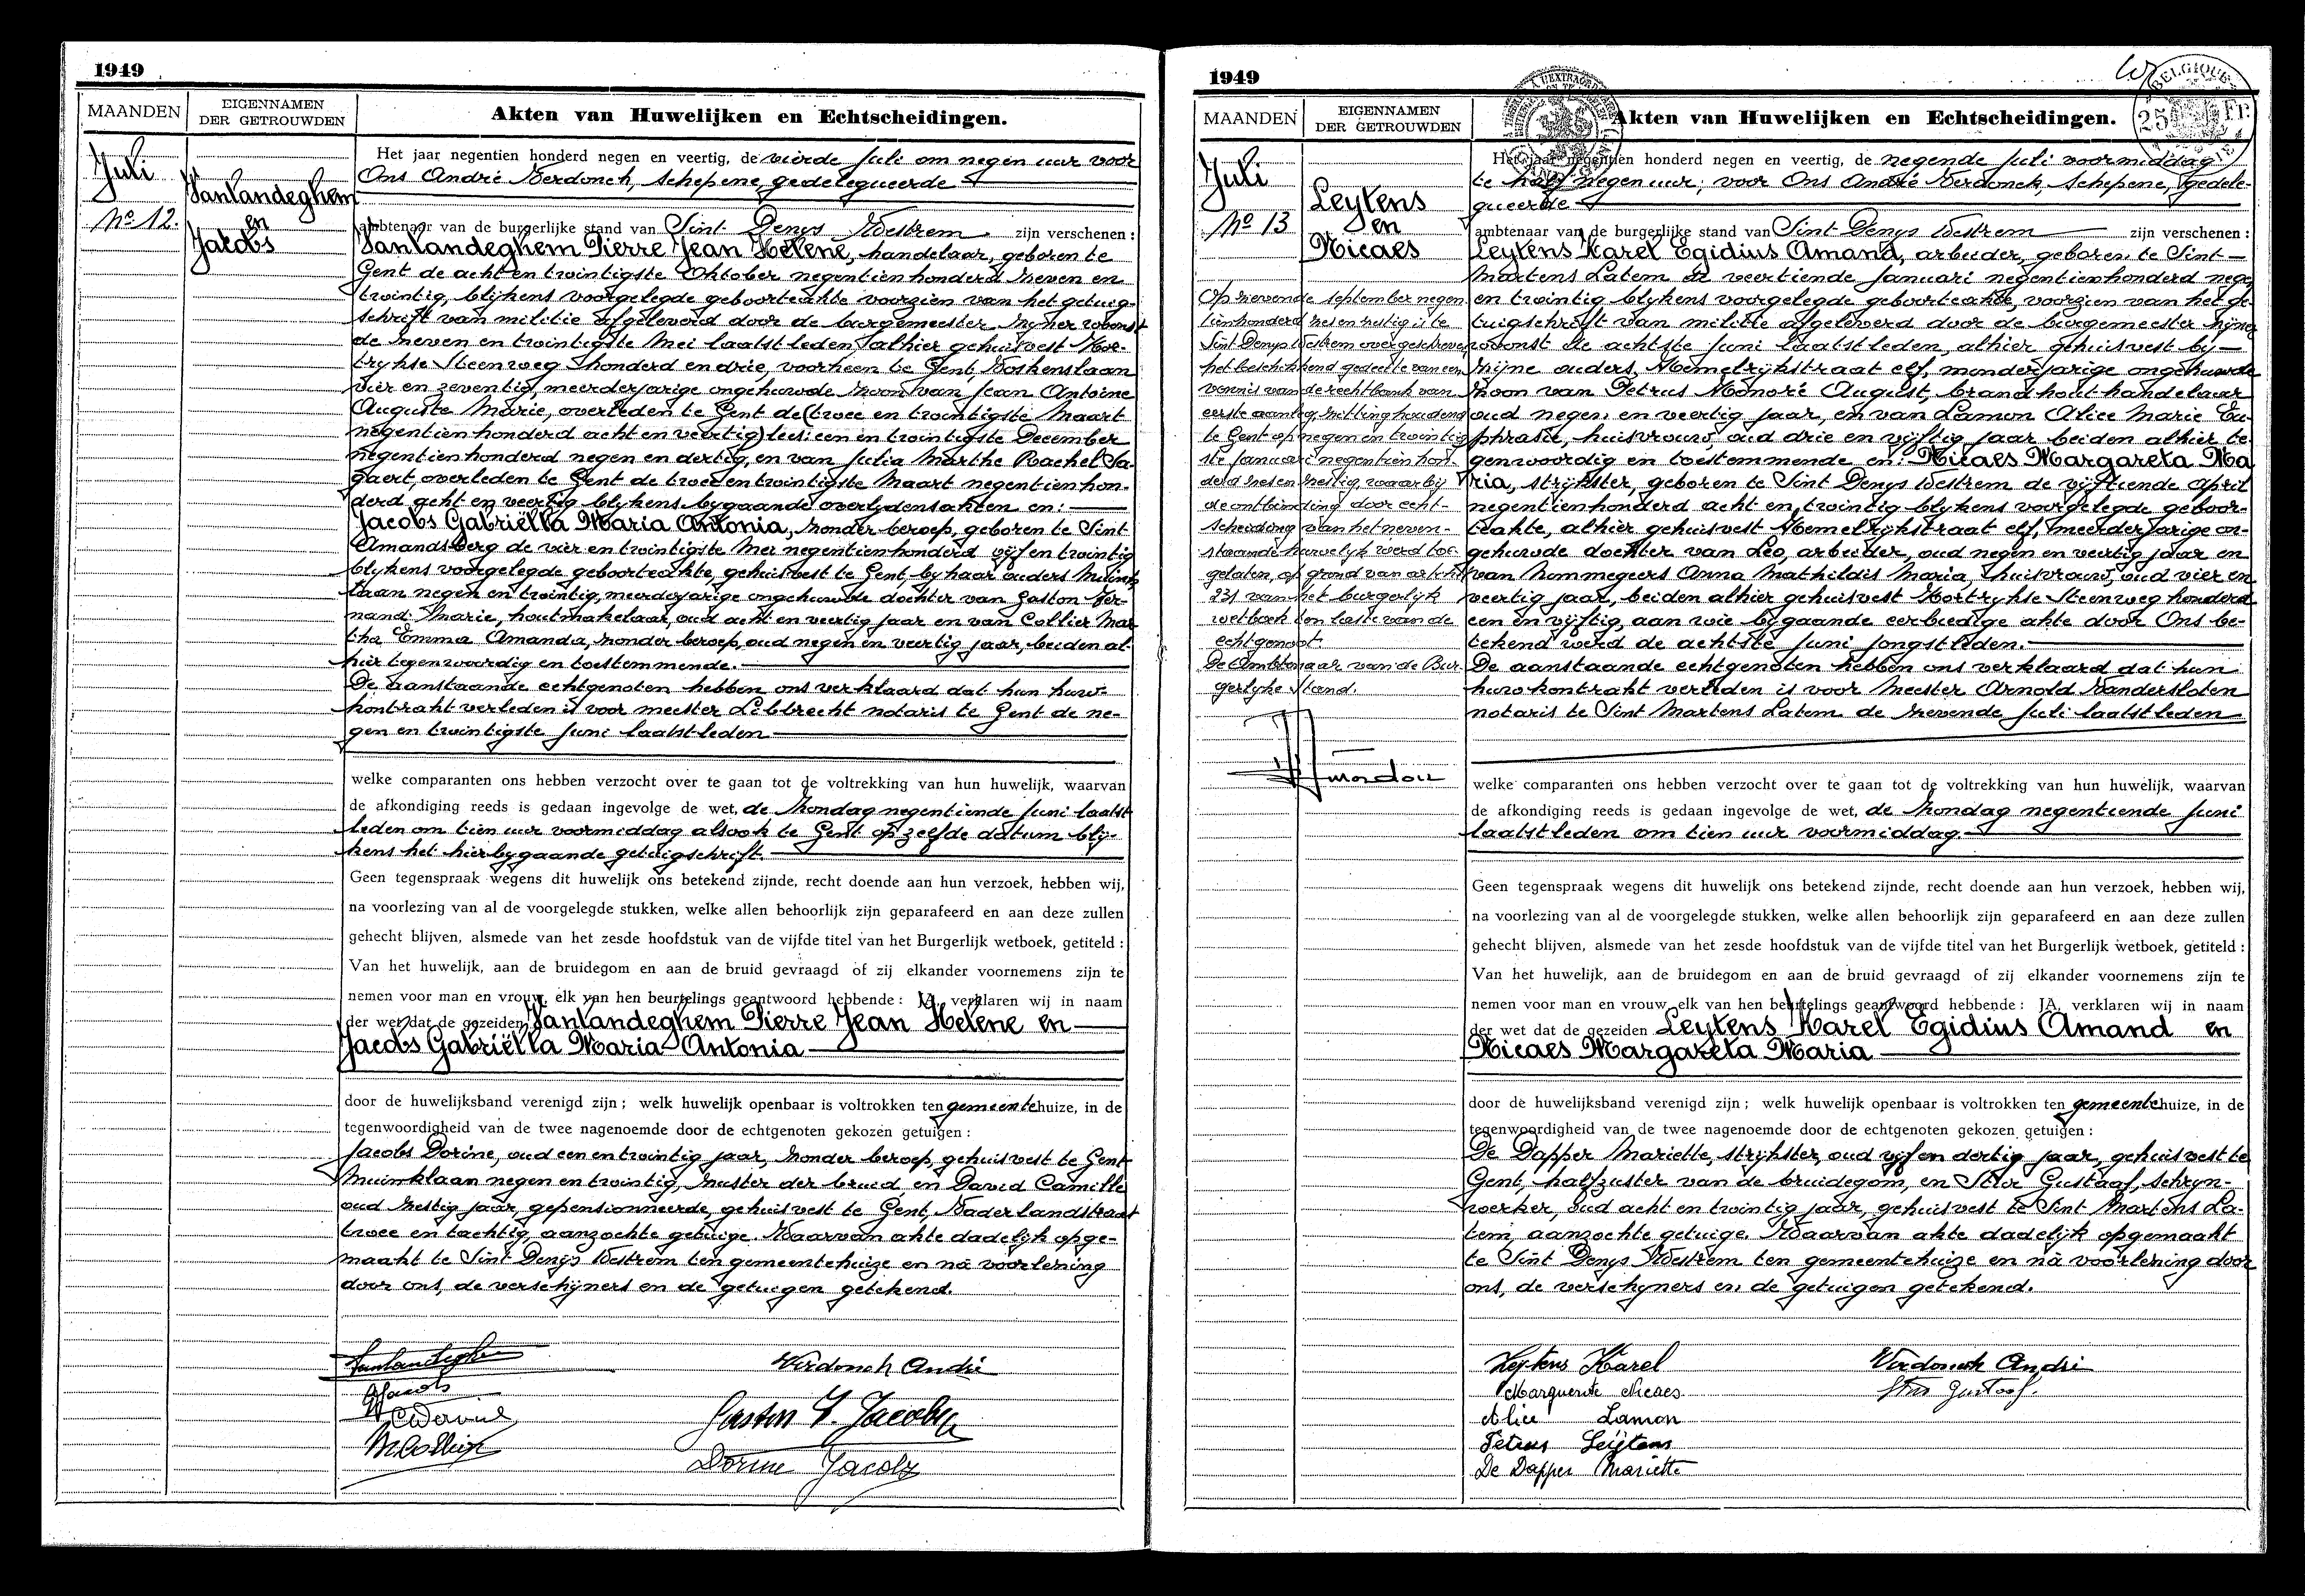 1949
MAANDEN
EIGENNAMEN
DER GETROUWDEN
Akten van Huwelijken en Echtscheidingen.
Juli
No 12.
Vanlandeghem
en
Jacobs
Het jaar negentien honderd negen en veertig, de vierde Juli om negen uur voor
Ons André Verdonck, schepene gedelegueerde
ambtenaar van de burgerlijke stand van Sint Denys Westrem zijn verschenen :
Vanlandeghem Pierre Jean Helene, handelaar, geboren te
Gent de acht en twintigste Oktober negentienhonderd zeven en
twintig, blijkens voorgelegde geboorteakte voorzien van het getuig-
schrift van militie afgeleverd door de burgemeester zijner woonst
de zeven en twintigste Mei laatstleden, alhier gehuisvest Kor-
trijkse Steenweg honderd en drie, voorheen te Gent, Voskenslaan
vier en zeventig, meerderjarige ongehuwde zoon van Jean Antoine
Auguste Marie, overleden te Gent de (twee en twintigste Maart
negentien honderd acht en veertig) lees: een en twintigste December
negentienhonderd negen en dertig, en van Julia Marthe Rachel Sa-
gaert, overleden te Gent de twee en twintigste Maart negentien hon-
derd acht en veertig blijkens bijgaande overlydensakten en:
Jacobs Gabriëlla Maria Antonia, zonder beroep, geboren te Sint
Amandsberg de vier en twintigste Mei negentienhonderd vijf en twintig
blijkens voorgelegde geboorteakte, gehuisvest te Gent, by haar ouders Muink-
laan negen en twintig, meerderjarige ongehuwde dochter van Gaston Fer-
nand Marie, houtmakelaar, oud acht en veertig jaar en van Collier Mar-
tha Emma Amanda, zonder beroep, oud negen en veertig jaar, beiden al-
hier tegenwoordig en toestemmende.
De aanstaande echtgenoten hebben ons verklaard dat hun huw-
kontrakt verleden is voor meester Libbrecht notaris te Gent de ne-
gen en twintigste Juni laatstleden
welke comparanten ons hebben verzocht over te gaan tot de voltrekking van hun huwelijk, waarvan
de afkondiging reeds is gedaan ingevolge de wet, de Zondag negentiende Juni laatst
leden om tien uur voormiddag alsook te Gent op zelfde datum blij-
kens het hierbygaande getuigschrift.
Geen tegenspraak wegens dit huwelijk ons betekend zijnde, recht doende aan hun verzoek, hebben wij,
na voorlezing van al de voorgelegde stukken, welke allen behoorlijk zijn geparafeerd en aan deze zullen
gehecht blijven, alsmede van het zesde hoofdstuk van de vijfde titel van het Burgerlijk wetboek, getiteld :
Van het huwelijk, aan de bruidegom en aan de bruid gevraagd of zij elkander voornemens zijn te
nemen voor man en vrouw, elk van hen beurtelings geantwoord hebbende : JA, verklaren wij in naam
der wet dat de gezeiden Vanlandeghem Pierre Jean Helene en
Jacobs Gabriëlla Maria Antonia
door de huwelijksband verenigd zijn ; welk huwelijk openbaar is voltrokken ten gemeentehuize, in de
tegenwoordigheid van de twee nagenoemde door de echtgenoten gekozen getuigen :
Jacobs Dorine, oud een en twintig jaar, zonder beroep, gehuisvest te Gent
Muinklaan negen en twintig, zuster der bruid, en David Camille
oud zestig jaar, gepensionneerde, gehuisvest te Gent, Vaderlandstraat
twee en tachtig, aanzochte getuige. Waarvan akte dadelijk opge-
maakt te Sint Denys Westrem ten gemeentehuize en nà voorlezing
door ons, de verschijners en de getuigen getekend.
Vanlandeghem
GJacobs
CDavid
M Collier
Verdonck André
Gaston F. Jacobs
Dorine Jacobs
1949
25 Fr.
BELGIQUE
MAANDEN
EIGENNAMEN
DER GETROUWDEN
Akten van Huwelijken en Echtscheidingen.
Juli
No 13
Leytens
en
Nicaes
Op zevende September negen
tienhonderd zes en zestig is te
Sint Denys Westrem overgeschreven
het beschikkend gedeelte van een
vonnis van de rechtbank van
eerste aanleg zitting houdend
te Gent op negen en twintig
ste Januari negentien hon-
derd zes en zestig waarbij
de ontbinding door echt-
scheiding van het neven-
staande huwelijk werd toe-
gelaten, op grond van artikel
231 van het burgerlijk
wetboek ten laste van de
echtgenoot.
De Ambtenaar van de Bur-
gerlyke Stand.
Het jaar negentien honderd negen en veertig, de negende Juli voormiddag
te half negen uur; voor Ons André Verdonck, Schepene, gedele-
gueerde
ambtenaar van de burgerlijke stand van Sint Denys Westrem zijn verschenen :
Leytens Karel Egidius Amand, arbeider, geboren te Sint
Martens Latem de veertiende Januari negentienhonderd negen
en twintig blykens voorgelegde geboorteakte, voorzien van het ge-
tuigschrift van militie afgeleverd door de burgemeester zijner
woonst de achtste Juni laatstleden, alhier gehuisvest bij
zijne ouders, Hemelrijkstraat elf, minderjarige ongehuwde
zoon van Petrus Honoré August, brandhouthandelaar
oud negen en veertig jaar, en van Lamon Alice Marie Eu-
phrasie, huisvrouw, oud drie en vijftig jaar beiden alhier te-
genwoordig en toestemmende en: Nicaes Margareta Ma
ria, strijkster, geboren te Sint Denys Westrem de vijftiende April
negentienhonderd acht en twintig blykens voorgelegde geboor-
teakte, alhier gehuisvest Hemelrijkstraat elf, meerderjarige on-
gehuwde dochter van Leo, arbeider, oud negen en veertig jaar en
van Hommegeers Anna Mathildis Maria, huisvrouw, oud vier en
veertig jaar, beiden alhier gehuisvest Kortrykse Steenweg honderd
een en vijftig, aan wie bijgaande eerbiedige akte door Ons be-
tekend werd de achtste Juni jongstleden.
De aanstaande echtgenoten hebben ons verklaard dat hun
huwkontrakt verleden is voor Meester Arnold Vandersloten
notaris te Sint Martens Latem de zevende Juli laatstleden
welke comparanten ons hebben verzocht over te gaan tot de voltrekking van hun huwelijk, waarvan
de afkondiging reeds is gedaan ingevolge de wet, de Zondag negentiende Juni
laatstleden om tien uur voormiddag.
Geen tegenspraak wegens dit huwelijk ons betekend zijnde, recht doende aan hun verzoek, hebben wij,
na voorlezing van al de voorgelegde stukken, welke allen behoorlijk zijn geparafeerd en aan deze zullen
gehecht blijven, alsmede van het zesde hoofdstuk van de vijfde titel van het Burgerlijk wetboek, getiteld :
Van het huwelijk, aan de bruidegom en aan de bruid gevraagd of zij elkander voornemens zijn te
nemen voor man en vrouw, elk van hen beurtelings geantwoord hebbende : JA, verklaren wij in naam
der wet dat de gezeiden Leytens Karel Egidius Amand en
Nicaes Margareta Maria
door de huwelijksband verenigd zijn ; welk huwelijk openbaar is voltrokken ten gemeentehuize, in de
tegenwoordigheid van de twee nagenoemde door de echtgenoten gekozen getuigen :
De Dapper Mariette, strijkster, oud vijf en dertig jaar, gehuisvest te
Gent, halfzuster van de bruidegom, en Gustaaf, schryn-
werker, oud acht en twintig jaar, gehuisvest te Sint Martens La-
tem, aanzochte getuige. Waarvan akte dadelijk opgemaakt
te Sint Denys Westrem ten gemeentehuize en nà voorlezing door
ons, de verschijners en de getuigen getekend.
Leytens Karel
Marguerite Nicaes
Alice Lamon
Petrus Leijtens
De Dapper Mariette
Verdonck André
Gustaaf.